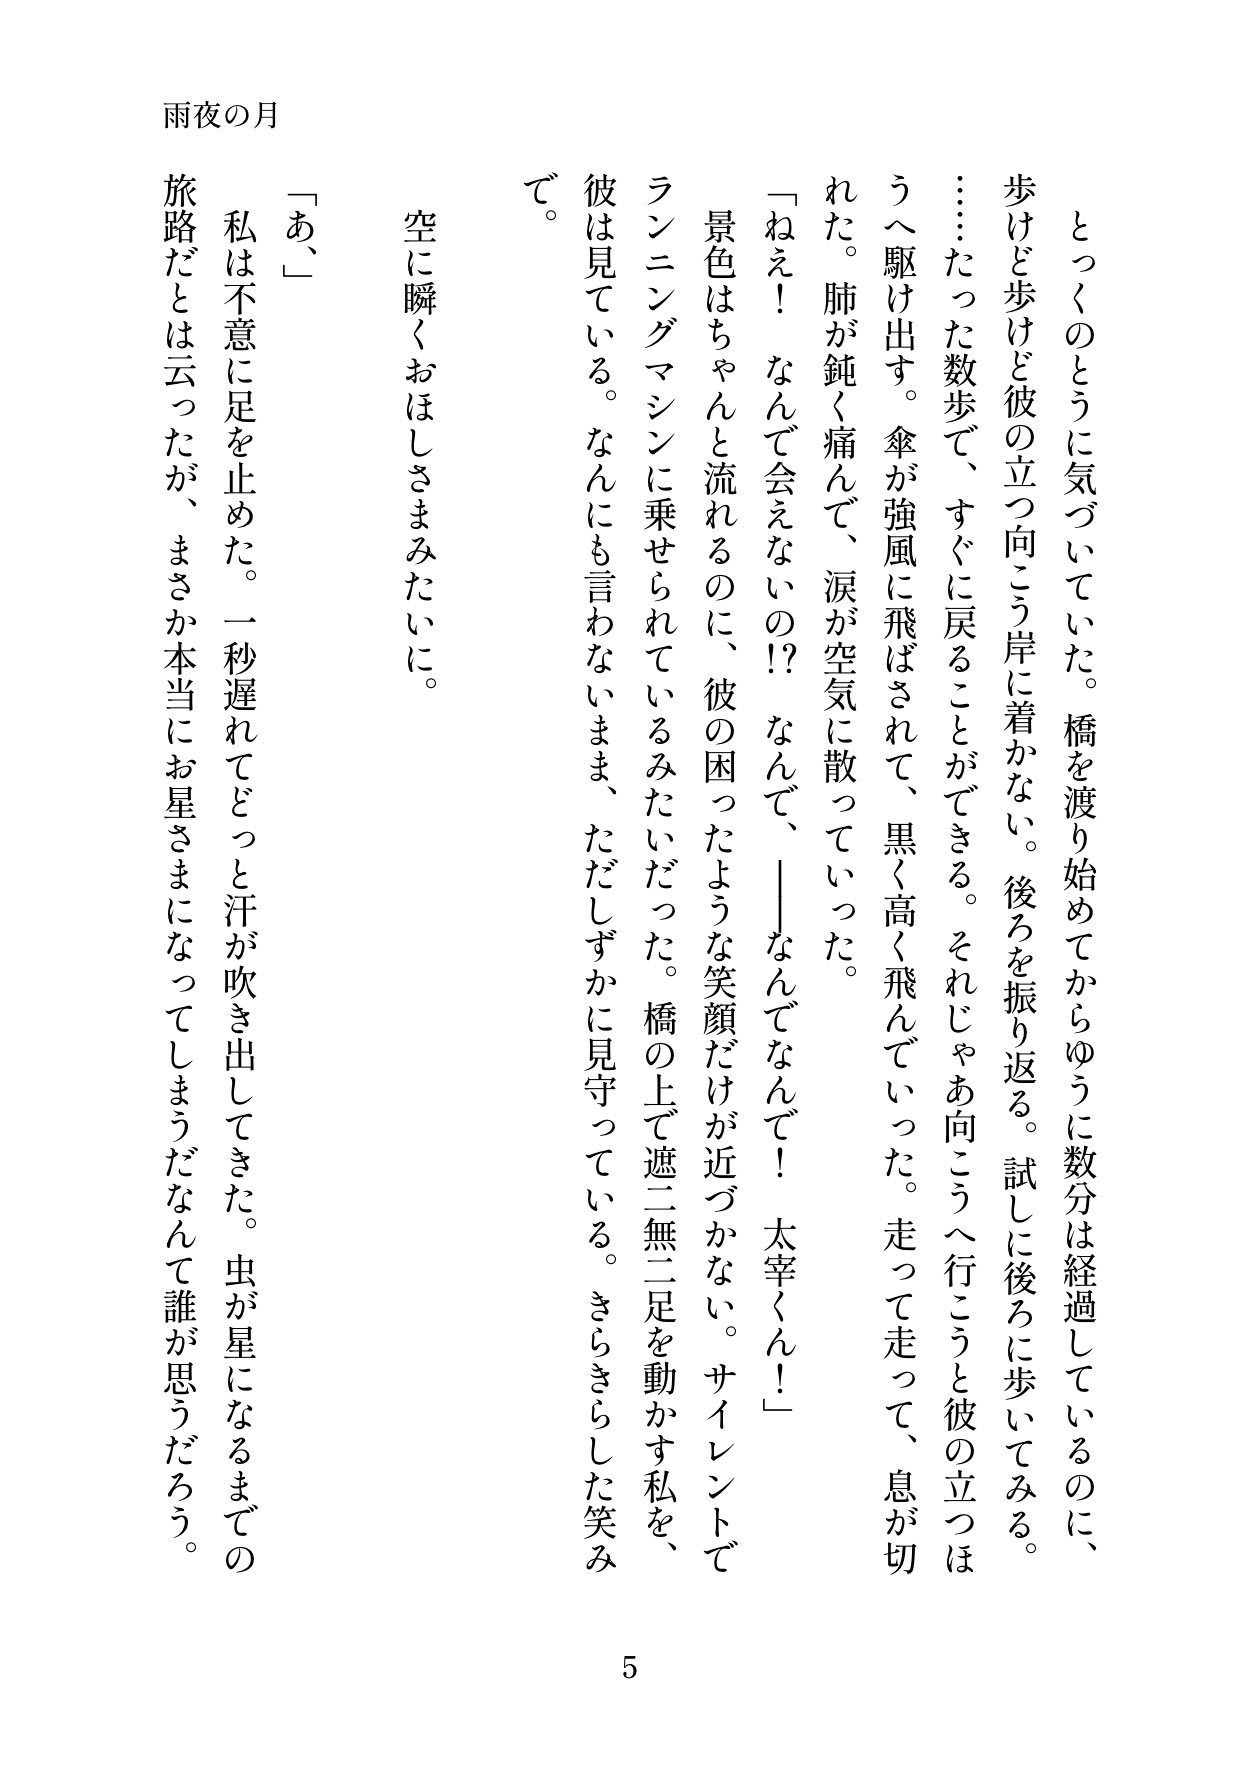 雨夜の月
　とっくのとうに気づいていた。橋を渡り始めてからゆうに数分は経過しているのに、
歩けど歩けど彼の立つ向こう岸に着かない。後ろを振り返る。試しに後ろに歩いてみる。
……たった数歩で、すぐに戻ることができる。それじゃあ向こうへ行こうと彼の立つほ
うへ駆け出す。傘が強風に飛ばされて、黒く高く飛んでいった。走って走って、息が切
れた。肺が鈍く痛んで、涙が空気に散っていった。
「ねえ！　なんで会えないの!?　なんで、――なんでなんで！　太宰くん！」
　景色はちゃんと流れるのに、彼の困ったような笑顔だけが近づかない。サイレントで
ランニングマシンに乗せられているみたいだった。橋の上で遮二無二足を動かす私を、
彼は見ている。なんにも言わないまま、ただしずかに見守っている。きらきらした笑み
で。
　空に瞬くおほしさまみたいに。
「あ、」
　私は不意に足を止めた。一秒遅れてどっと汗が吹き出してきた。虫が星になるまでの
旅路だとは云ったが、まさか本当にお星さまになってしまうだなんて誰が思うだろう。
5